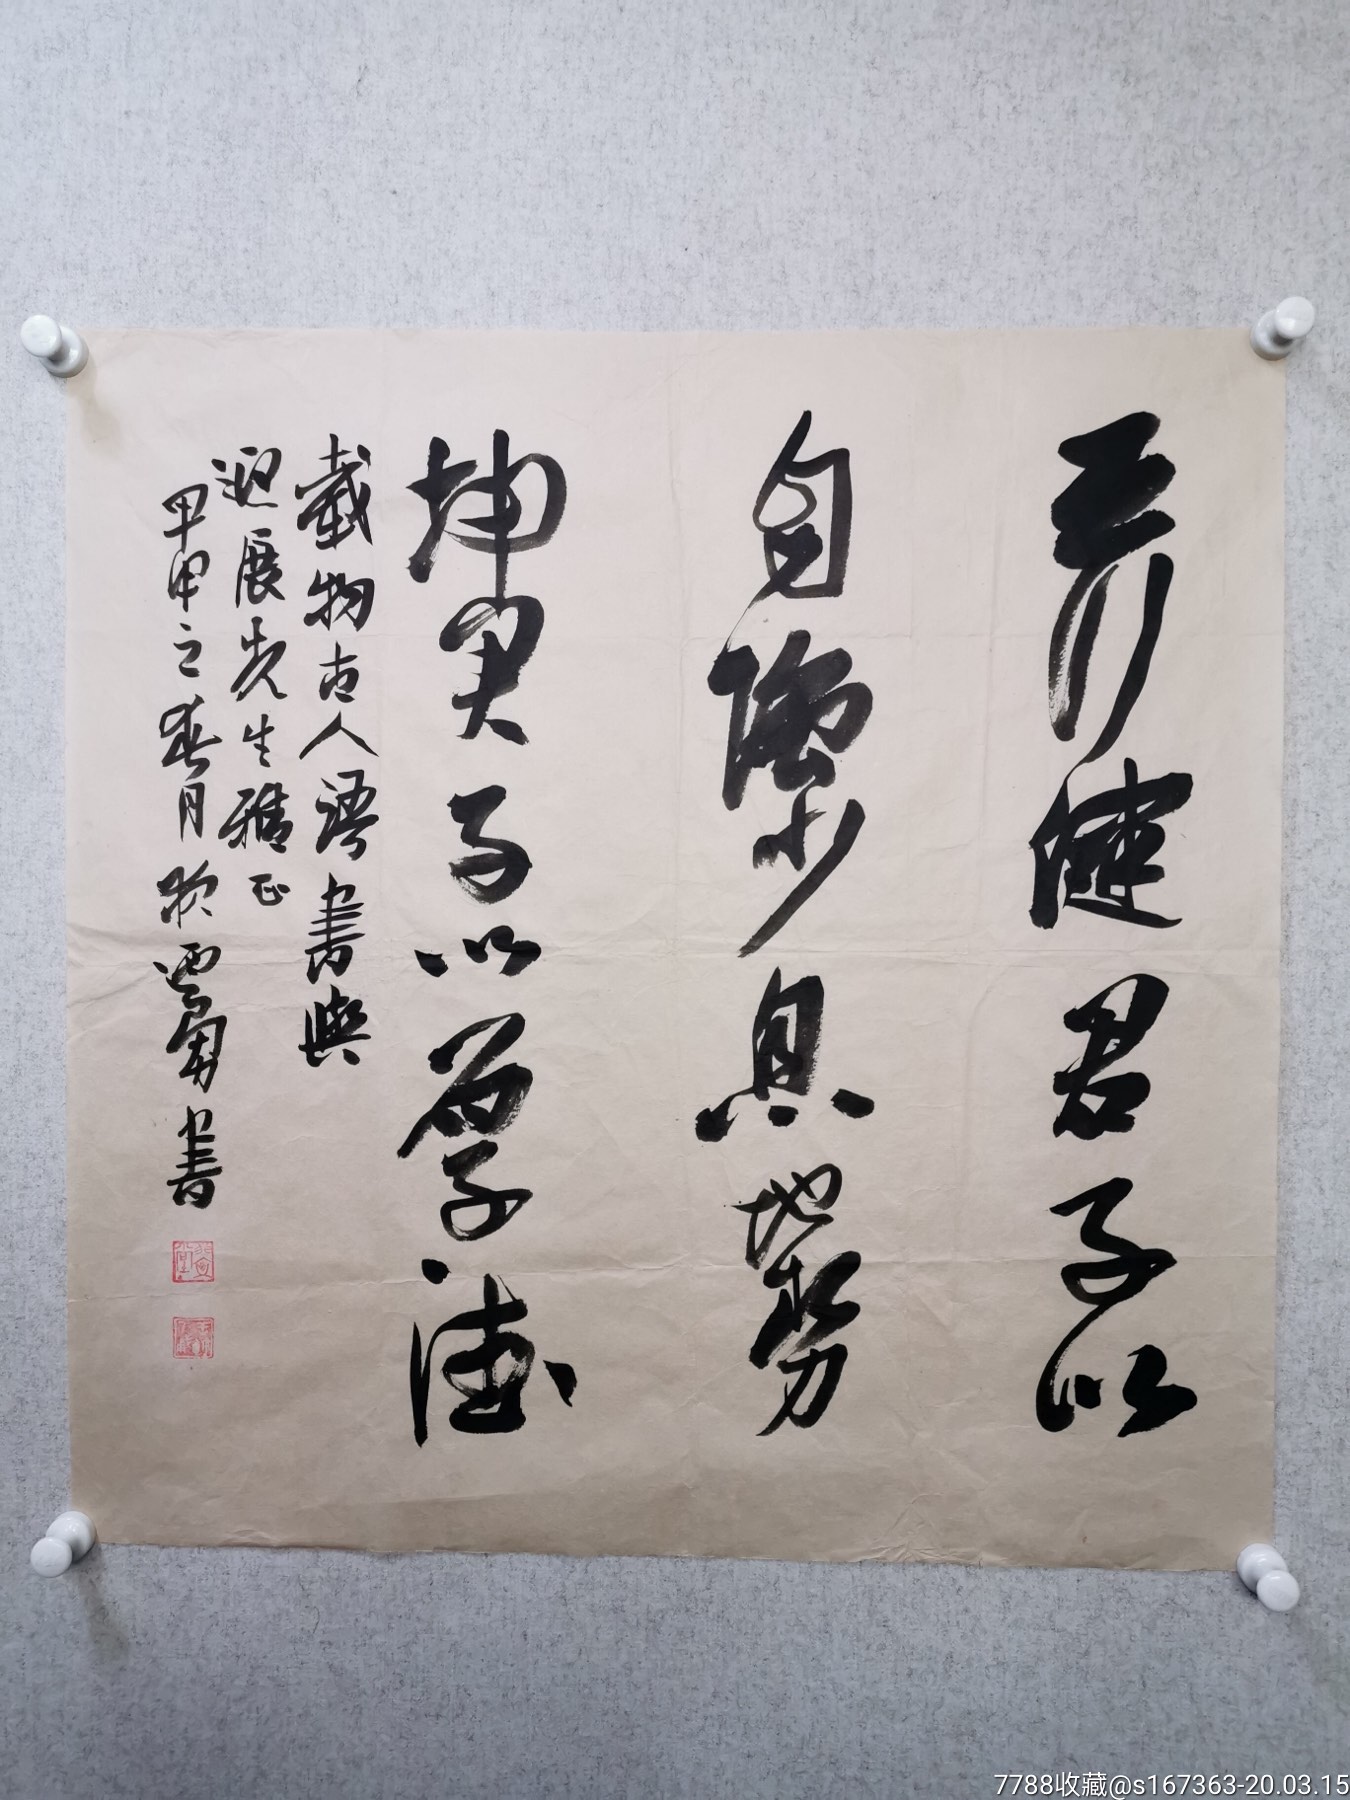 天行健君子以
自強不息地勢
坤君子以厚德
載物古人語書與
迎展先生雅正
甲申之春月於雲書
7788收藏@s167363-20.03.15